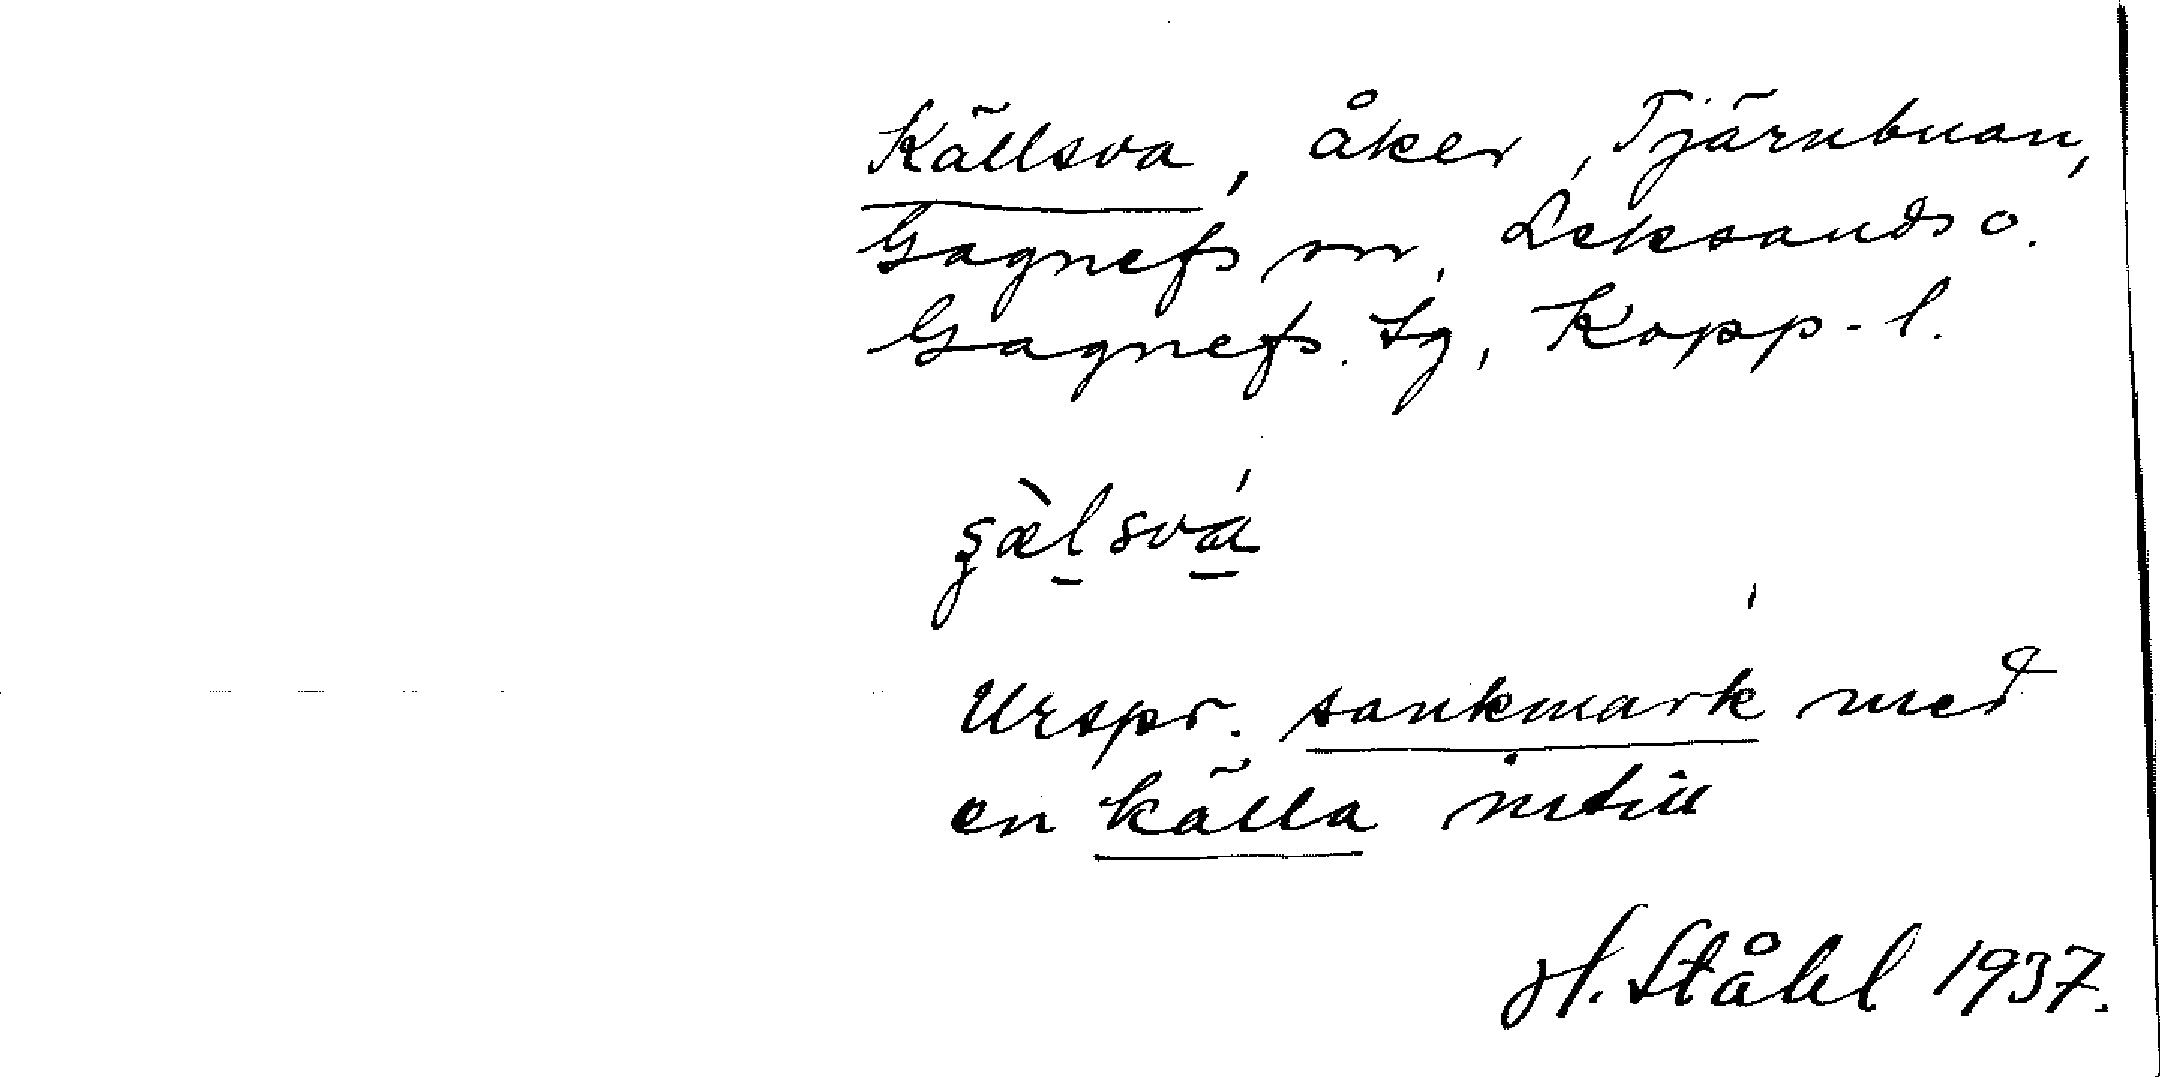 Källsva, åker, Tjärnbuan,
Gagnefs sn, Leksands o.
Gagnefs. tg, Kopp-l.
s̨æ̀l̠svá̠
Urspr. sankmark med
en källa intill
H. Ståhl 1937.